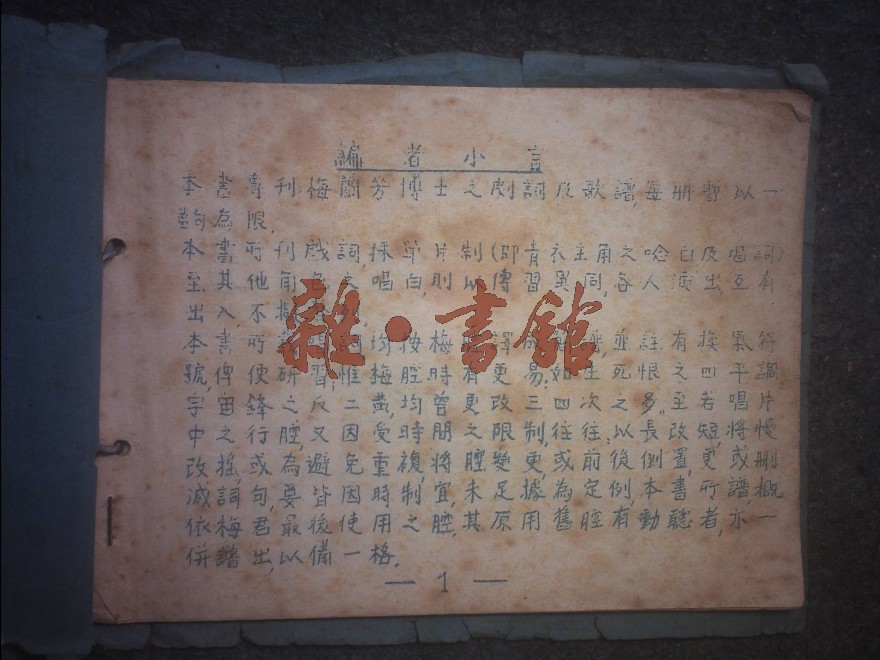 編者小言
本書專刊梅蘭芳博士之劇詞及歌譜,每册暫以一
齣為限.
本書所刊戲詞,採單片制(即青衣主角之唸白及唱詞)
至其他角色唱白,則以傳習異同,各人演出,互有
出入,不
本書所 均按梅 譯成 並註有換氣符
號,俾便研習,惟梅腔時有更易,如 生死恨之四平調
宇宙鋒之反二黃,均曾更改三四次之多。至若唱片
中之行腔,又因受時間之限制,往往以長改短,將慢
改搖,或為避免重複,將腔變更,或前後倒置,或刪
減詞句,要皆因時制宜,未足據為定例,本書所譜,概
依梅君最後使用之腔,其原用舊腔,有動聽者,亦一
併譜出,以備一格.
— 1 —
雜·書館